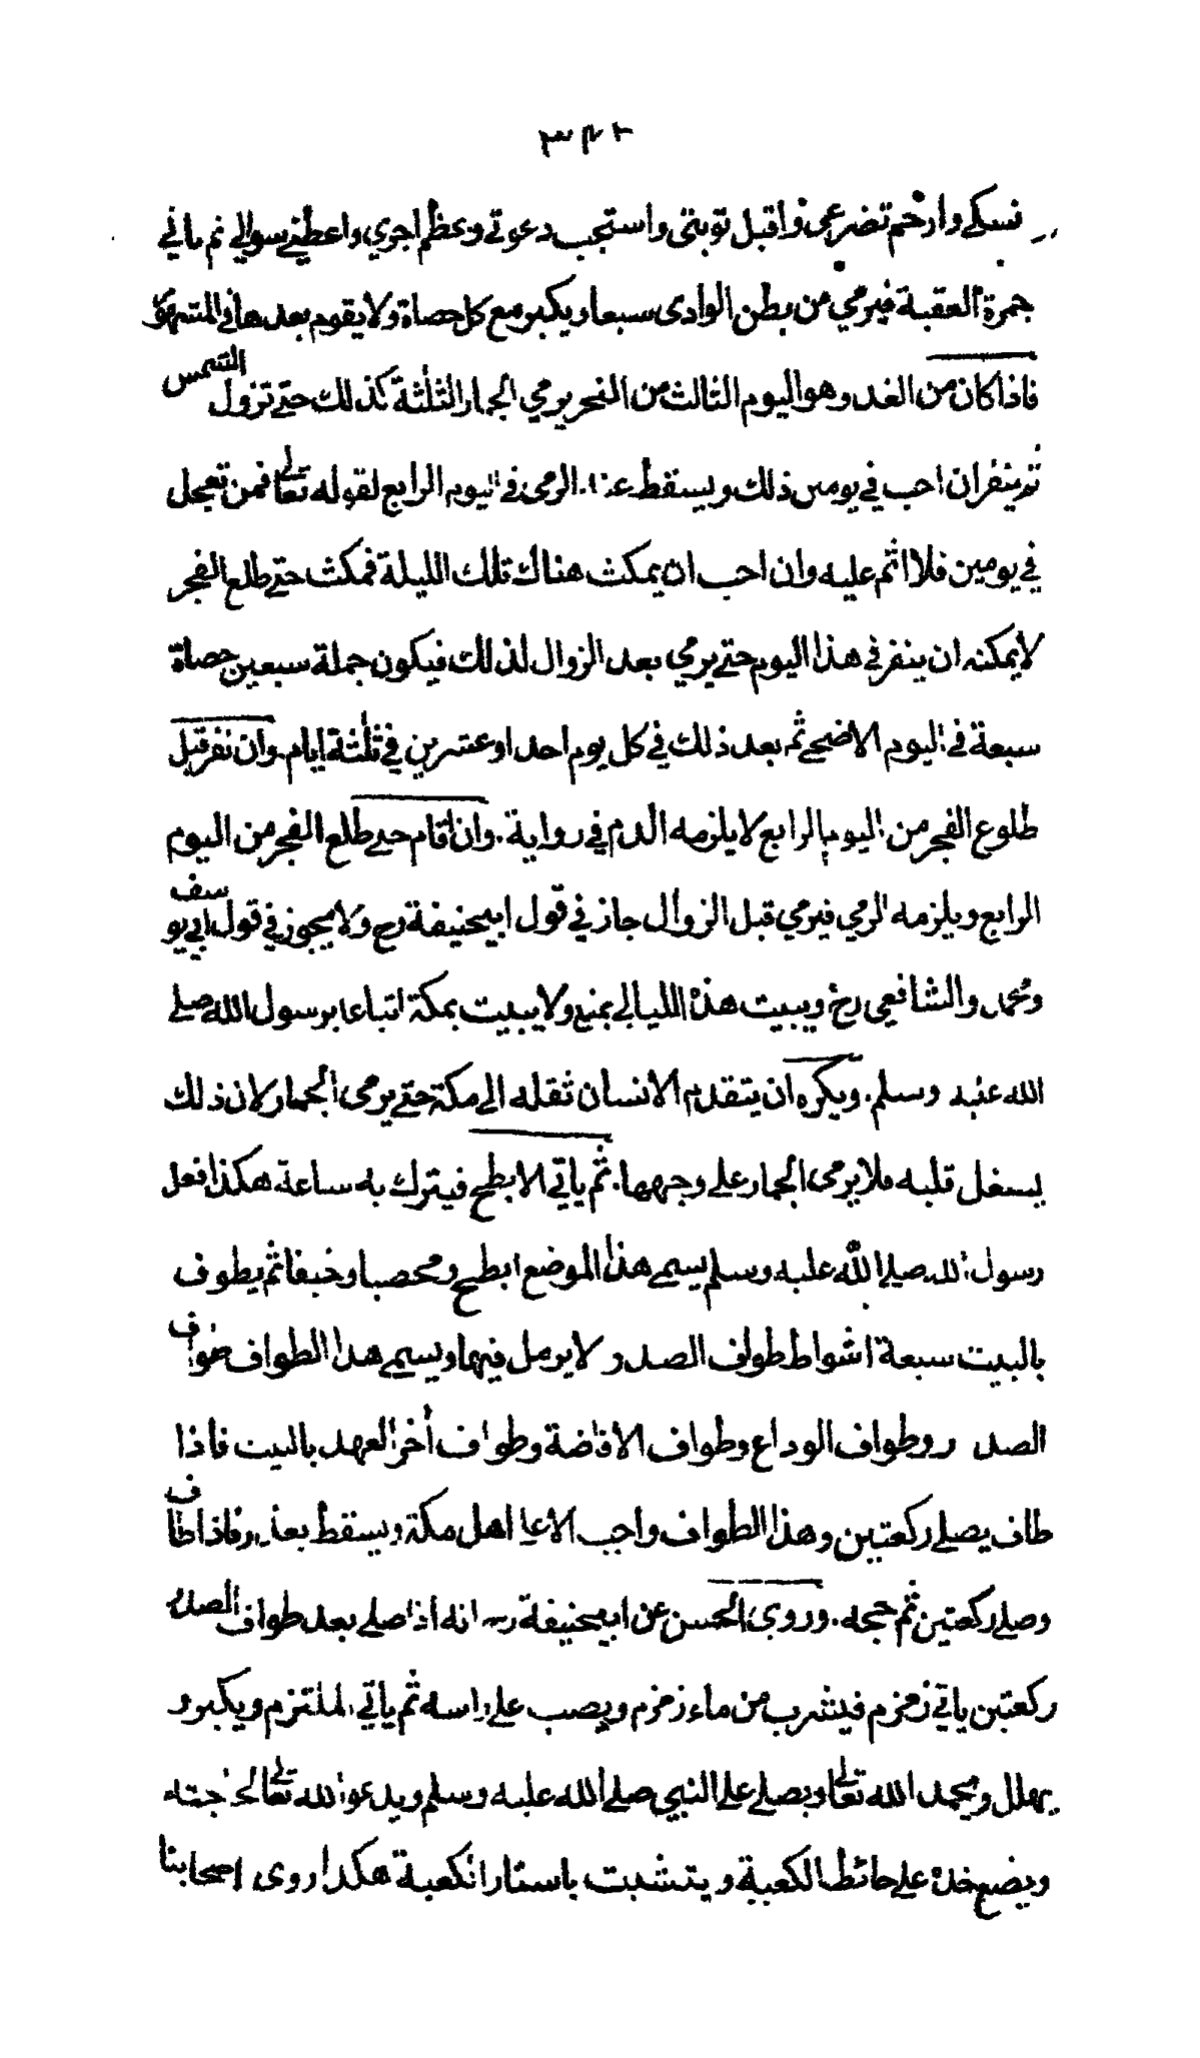 ٣٤٢
نسكي وارحم تضرعي واقبل توبتي واستجب دعوتي وعظم اجري واعطني سوالي ثم ياتي
جمرة العقبة فيرمي من بطن الوادى سبعا ويكبر مع كل حصاة ولا يقوم بعدها في المشهور
فاذا كان من الغد وهو اليوم الثالث من النحر يرمي الجمار الثلثة كذلك حتے تزول الشمس
ثم ينفران احب في يومين ذلك ويسقط عنه الرمى في اليوم الرابع لقوله تعالى فمن تعجل
في يومين فلا اثم عليه وان احب ان يمكث هناك تلك الليلة فمكث حتے طلع الفجر
لا يمكنه ان ينفر في هذا اليوم حتے يرمي بعد الزوال لذلك فيكون جملة سبعين حصاة
سبعة في اليوم الاضحے ثم بعد ذلك في كل يوم احد او عشرين في ثلثة ايام وان نفر قبل
طلوع الفجر من اليوم الرابع لا يلزمه الدم في رواية. وان اقام حتے طلع الفجر من اليوم
الرابع ويلزمه الرمي فيرمي قبل الزوال جاز في قول ابيحنيفة رح ولا يجوز في قول ابي يوسف
ومحمد والشافعي رح ويبيت هذه الليالي بمنى ولا يبيت بمكة اتباعا برسول الله صلے
الله عليه وسلم. ويكره ان يتقدم الانسان ثقله الى مكة حتے يرمى الجمار لان ذلك
يشغل قلبه فلا يرمى الجمار على وجهها. ثم ياتي الابطح فيترك به ساعة هكذا فعل
رسول الله صلے الله عليه وسلم يسمے هذا الموضع ابطح ومحصبا وخيفا ثم يطوف
بالبيت سبعة اشواط طواف الصدر ولا يرمل فيها ويسمے هذا الطواف طواف
الصدر وطواف الوداع وطواف الافاضة وطواف أخر العهد بالبيت فاذا
طاف يصلے ركعتين وهذا الطواف واجب الا على اهل مكة ويسقط بعذر فاذا طاف
وصلے ركعتين ثم حجه. وروى الحسن عن ابيحنيفة رح انه اذا صلے بعد طواف الصدر
ركعتين ياتي زمزم فيشرب من ماء زمزم ويصب على راسه ثم ياتي الملتزم ويكبر و
يهلل ويحمد الله تعالى ويصلے على النبي صلے الله عليه وسلم ويدعو الله تعالى لحاجته
ويضع خده على حائط الكعبة ويتشبث باستار الكعبة هكذا روى اصحابنا